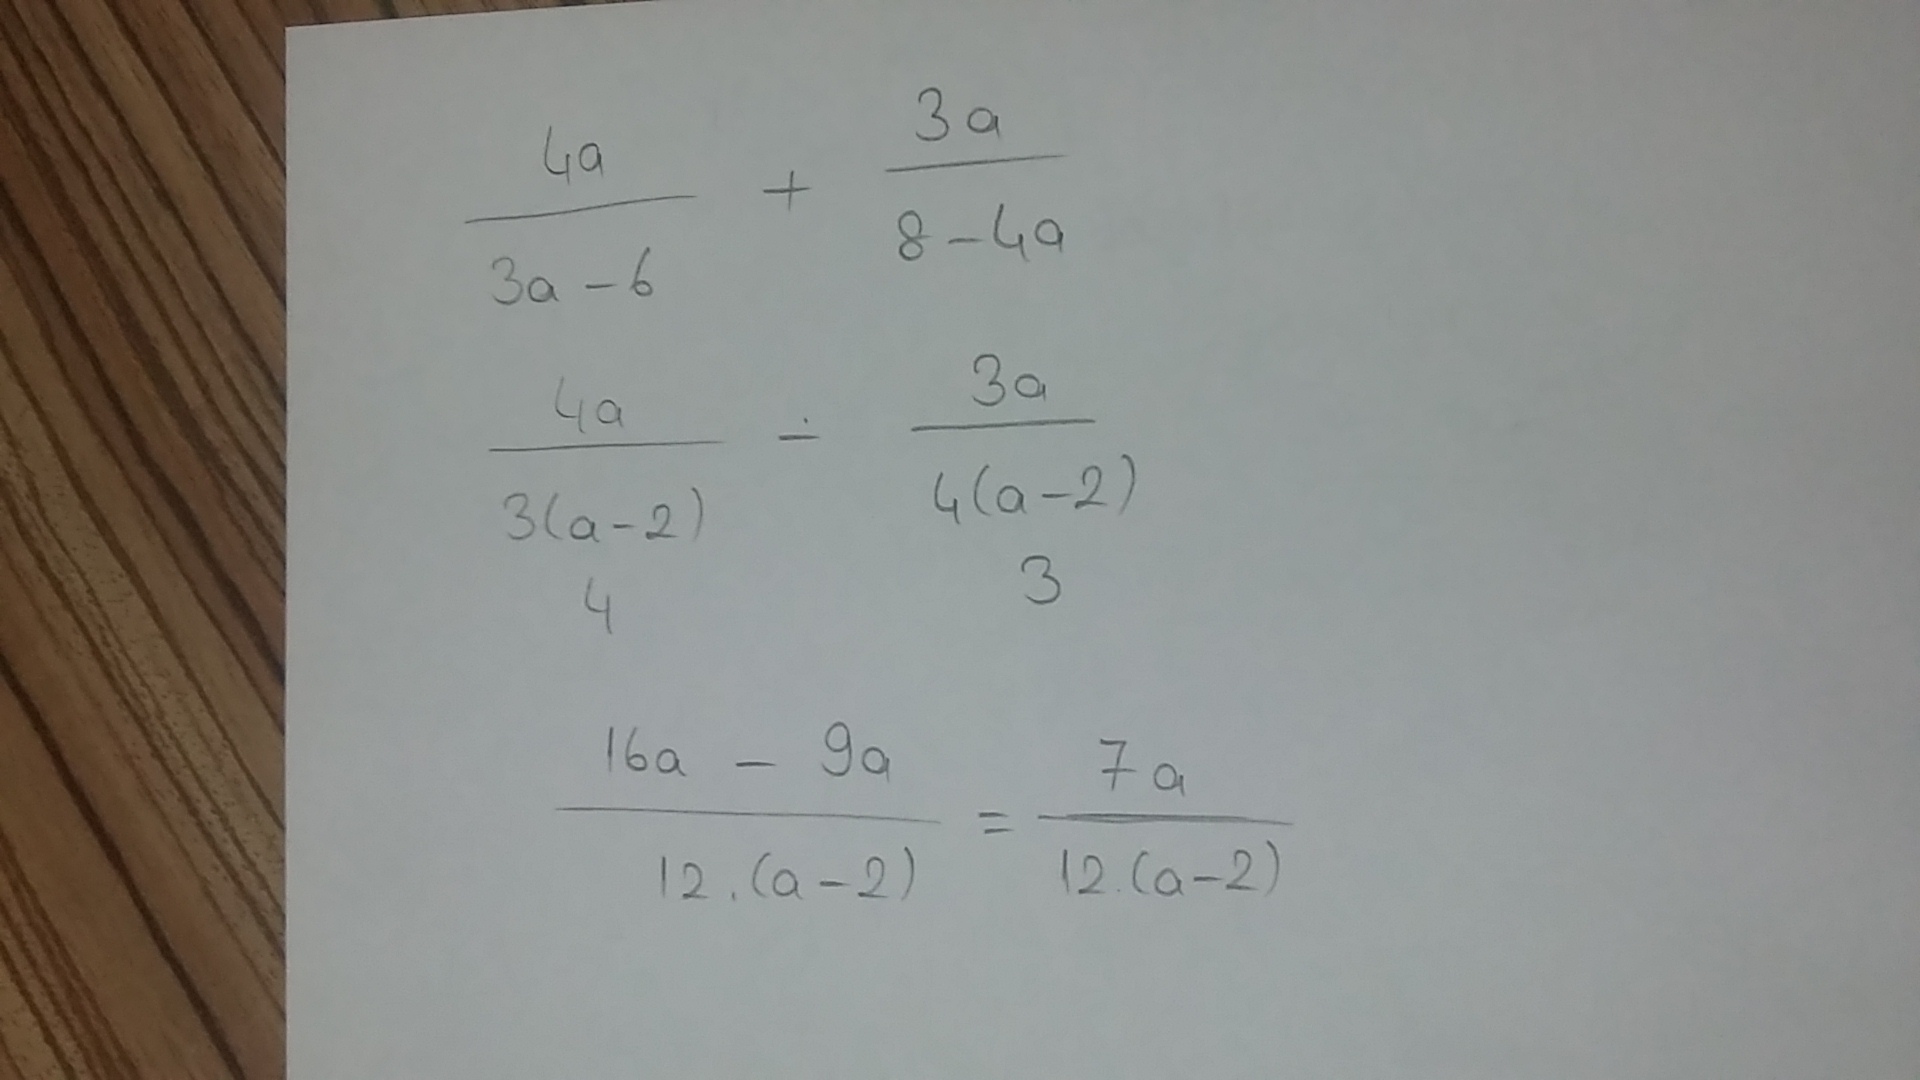 4a/(3a-6) + 3a/(8-4a)
4a/(3(a-2)) - 3a/(4(a-2))
4 3
(16a - 9a)/(12.(a-2)) = 7a/(12.(a-2))